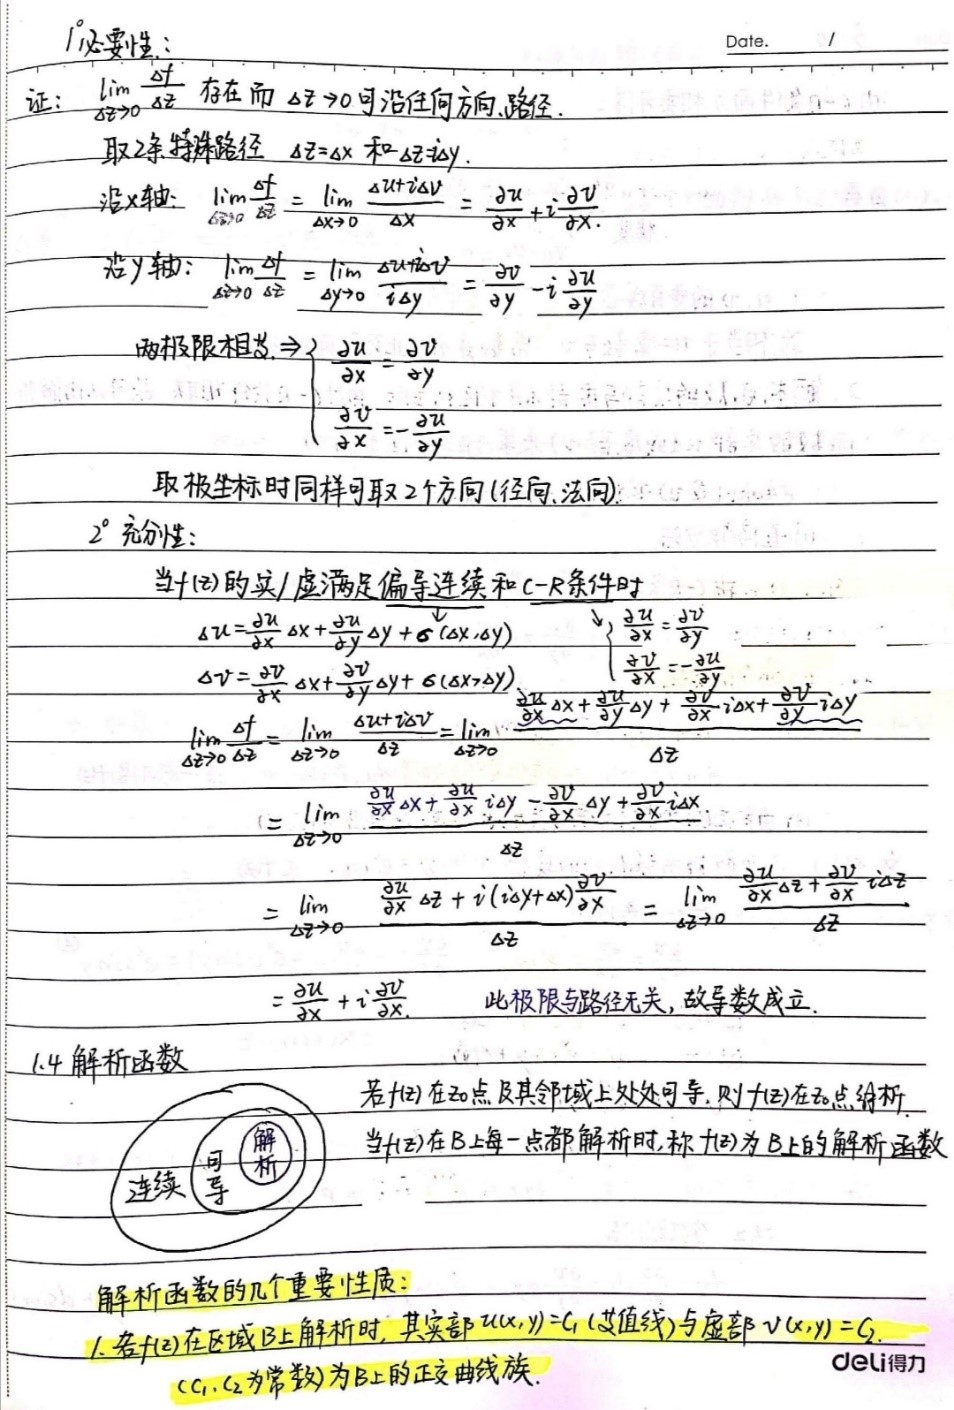 1° 必要性:
Date. /
证: lim_{Δz→0} Δf/Δz 存在而 Δz→0可沿任何方向.路径.
取2条特殊路径 Δz=Δx 和 Δz=iΔy.
沿x轴: lim_{Δz→0} Δf/Δz = lim_{Δx→0} (Δu+iΔv)/Δx = ∂u/∂x + i ∂v/∂x.
沿y轴: lim_{Δz→0} Δf/Δz = lim_{Δy→0} (Δu+iΔv)/(iΔy) = ∂v/∂y - i ∂u/∂y
两极限相等.⇒ { ∂u/∂x = ∂v/∂y
∂v/∂x = -∂u/∂y
取极坐标时同样可取2个方向(径向、法向).
2° 充分性:
当f(z)的实/虚满足偏导连续和C-R条件时
Δu = ∂u/∂x Δx + ∂u/∂y Δy + o(Δx,Δy) ↓ ↘ { ∂u/∂x = ∂v/∂y
Δv = ∂v/∂x Δx + ∂v/∂y Δy + o(Δx,Δy) ∂v/∂x = -∂u/∂y
lim_{Δz→0} Δf/Δz = lim_{Δz→0} (Δu+iΔv)/Δz = lim_{Δz→0} (∂u/∂x Δx + ∂u/∂y Δy + ∂v/∂x iΔx + ∂v/∂y iΔy)/Δz
= lim_{Δz→0} (∂u/∂x Δx + ∂u/∂x iΔy - ∂v/∂x Δy + ∂v/∂x iΔx)/Δz
= lim_{Δz→0} (∂u/∂x Δz + i(iΔy+Δx)∂v/∂x)/Δz = lim_{Δz→0} (∂u/∂x Δz + ∂v/∂x iΔz)/Δz
= ∂u/∂x + i ∂v/∂x. 此极限与路径无关,故导数成立.
1.4 解析函数
若f(z)在z₀点及其邻域上处处可导.则f(z)在z₀点解析.
当f(z)在B上每一点都解析时,称f(z)为B上的解析函数
连续 可导 解析
解析函数的几个重要性质:
1. 若f(z)在区域B上解析时,其实部u(x,y)=C₁(等值线)与虚部v(x,y)=C₂.
(C₁、C₂为常数)为B上的正交曲线族.
deli得力